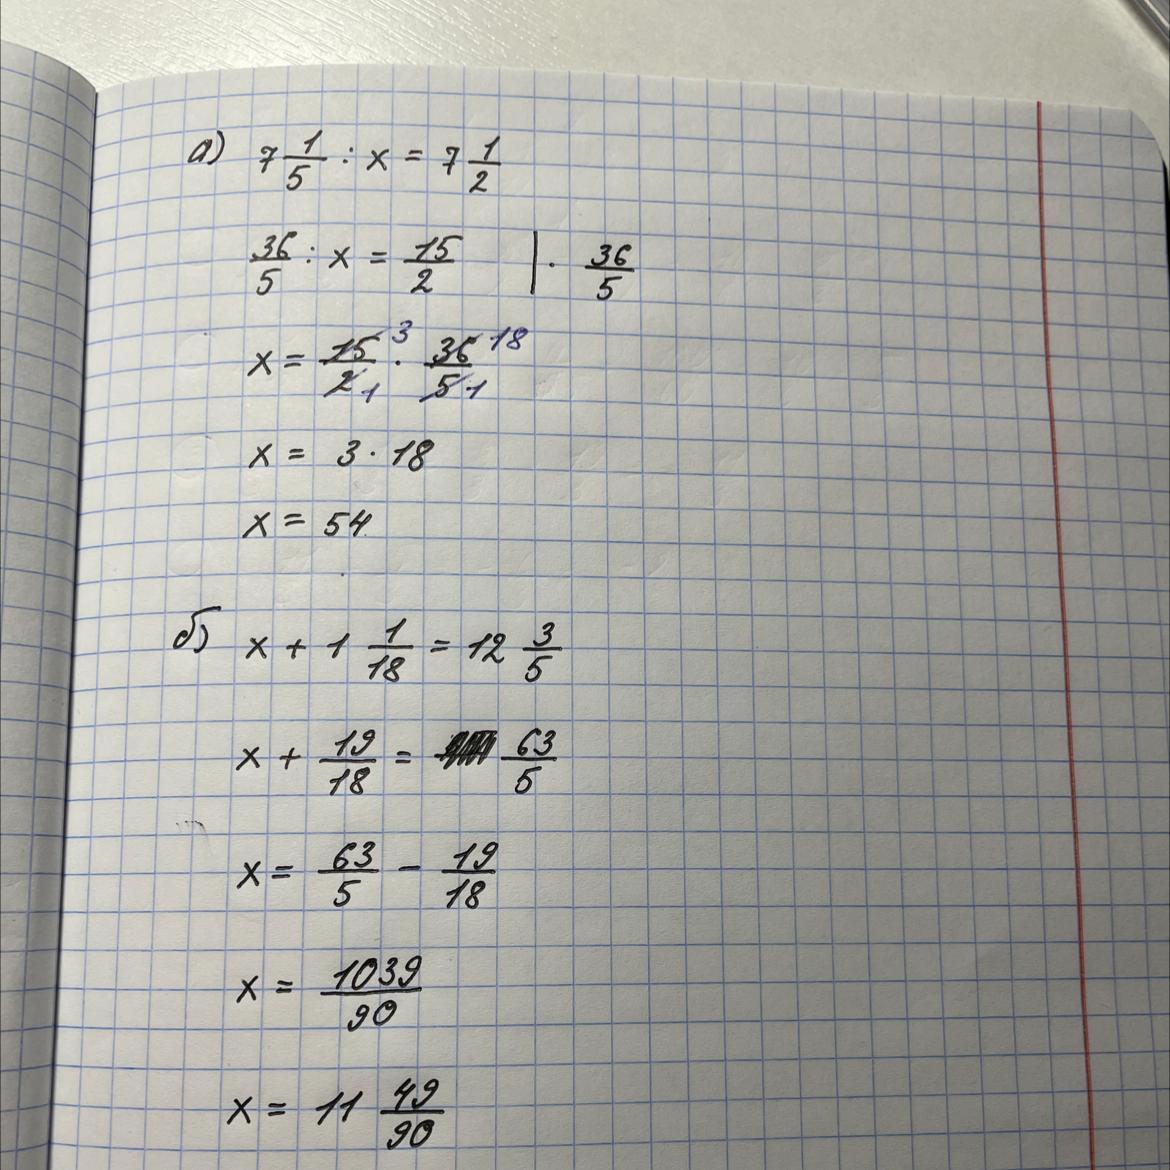 а) 7 1/5 : x = 7 1/2
36/5 : x = 15/2 | · 36/5
x = 15/2 · 36/5 3 18 1 1
x = 3 · 18
x = 54
б) x + 1 1/18 = 12 3/5
x + 19/18 = 63/5
x = 63/5 - 19/18
x = 1039/90
x = 11 49/90